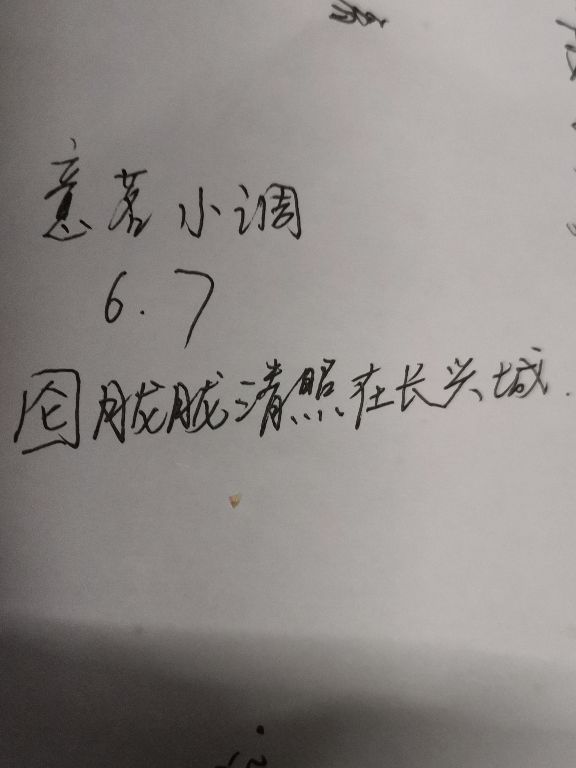 意茗小调
6.7
囵胧胧清照在长兴城.